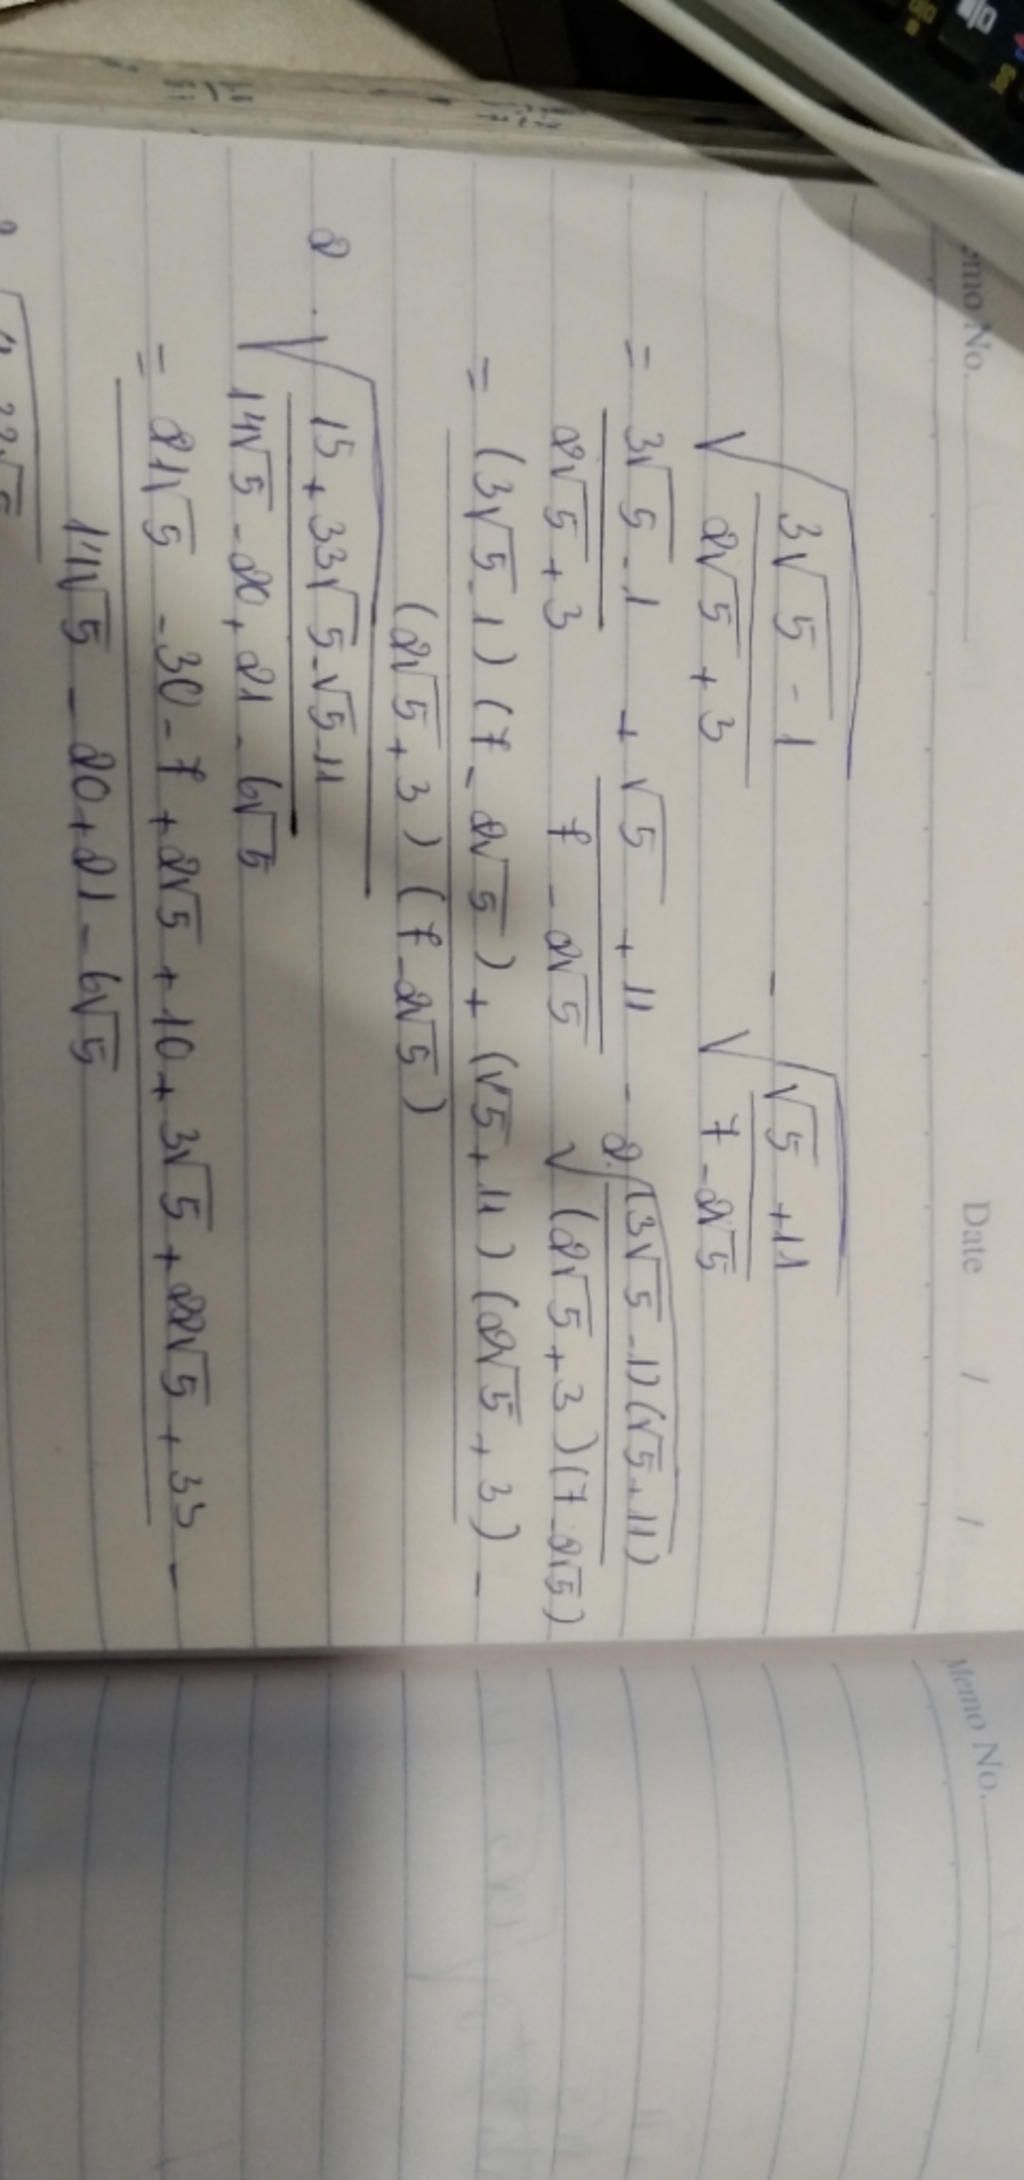 emo No.
Date / /
√((3√5 - 1)/(2√5 + 3)) - √((√5 + 11)/(7 - 2√5))
= (3√5 - 1)/(2√5 + 3) + (√5 + 11)/(7 - 2√5) - 2.√((3√5 - 1)(√5 + 11)/(2√5 + 3)(7 - 2√5))
= ((3√5 - 1)(7 - 2√5) + (√5 + 11)(2√5 + 3))/((2√5 + 3)(7 - 2√5)) -
2 . √((15 + 33√5 - √5 - 11)/(14√5 - 20 + 21 - 6√5))
= (21√5 - 30 - 7 + 2√5 + 10 + 3√5 + 22√5 + 33)/(14√5 - 20 + 21 - 6√5) -
Memo No.